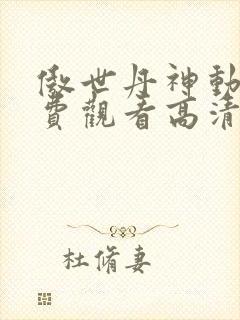 傲世丹神動
費觀看高清
杜脩妻